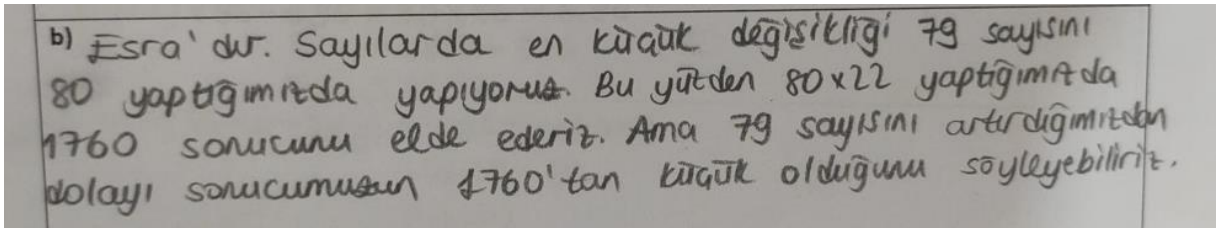 b) Esra' dır. Sayılarda en küçük değişikliği 79 sayısını
80 yaptığımızda yapıyoruz. Bu yüzden 80x22 yaptığımızda
1760 sonucunu elde ederiz. Ama 79 sayısını artırdığımızdan
dolayı sonucumuzun 1760'tan küçük olduğunu söyleyebiliriz.